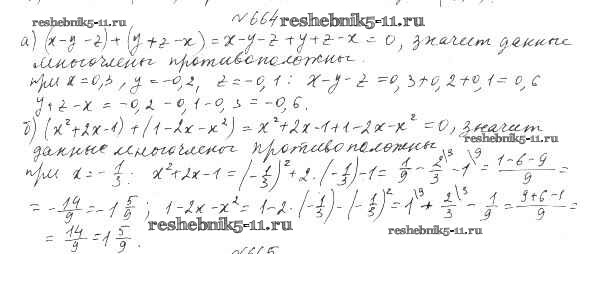 №664 reshebnik5-11.ru
reshebnik5-11.ru
а) (x-y-z)+(y+z-x)=x-y-z+y+z-x=0, значит данные
многочлены противоположны.
при x=0,3, y=-0,2, z=-0,1: x-y-z=0,3+0,2+0,1=0,6
y+z-x=-0,2-0,1-0,3=-0,6.
б) (x²+2x-1)+(1-2x-x²)=x²+2x-1+1-2x-x²=0, значит
reshebnik5-11.ru
данные многочлены противоположны
при x=-1/3: x²+2x-1=(-1/3)²+2·(-1/3)-1=1/9-2/3\3-1\9=(1-6-9)/9=
=-14/9=-1 5/9; 1-2x-x²=1-2·(-1/3)-(-1/3)²=1\9+2/3\3-1/9=(9+6-1)/9=
reshebnik5-11.ru
reshebnik5-11.ru
=14/9=1 5/9.
№665